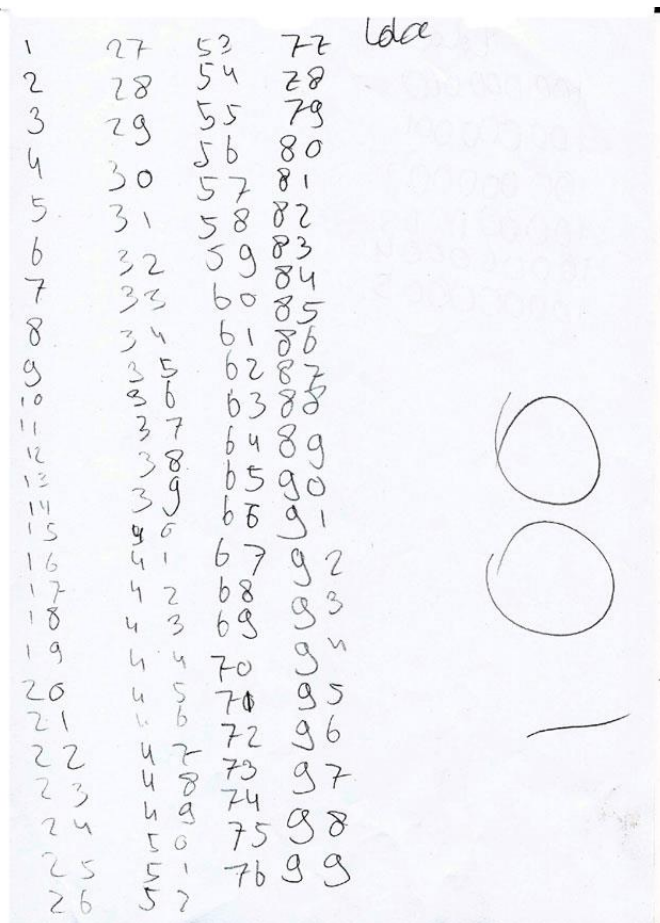 Ida
1
2
3
4
5
6
7
8
9
10
11
12
13
14
15
16
17
18
19
20
21
22
23
24
25
26
27
28
29
30
31
32
33
34
35
36
37
38
39
40
41
42
43
44
45
46
47
48
49
50
51
52
53
54
55
56
57
58
59
60
61
62
63
64
65
66
67
68
69
70
71
72
73
74
75
76
77
78
79
80
81
82
83
84
85
86
87
88
89
90
91
92
93
94
95
96
97
98
99
100